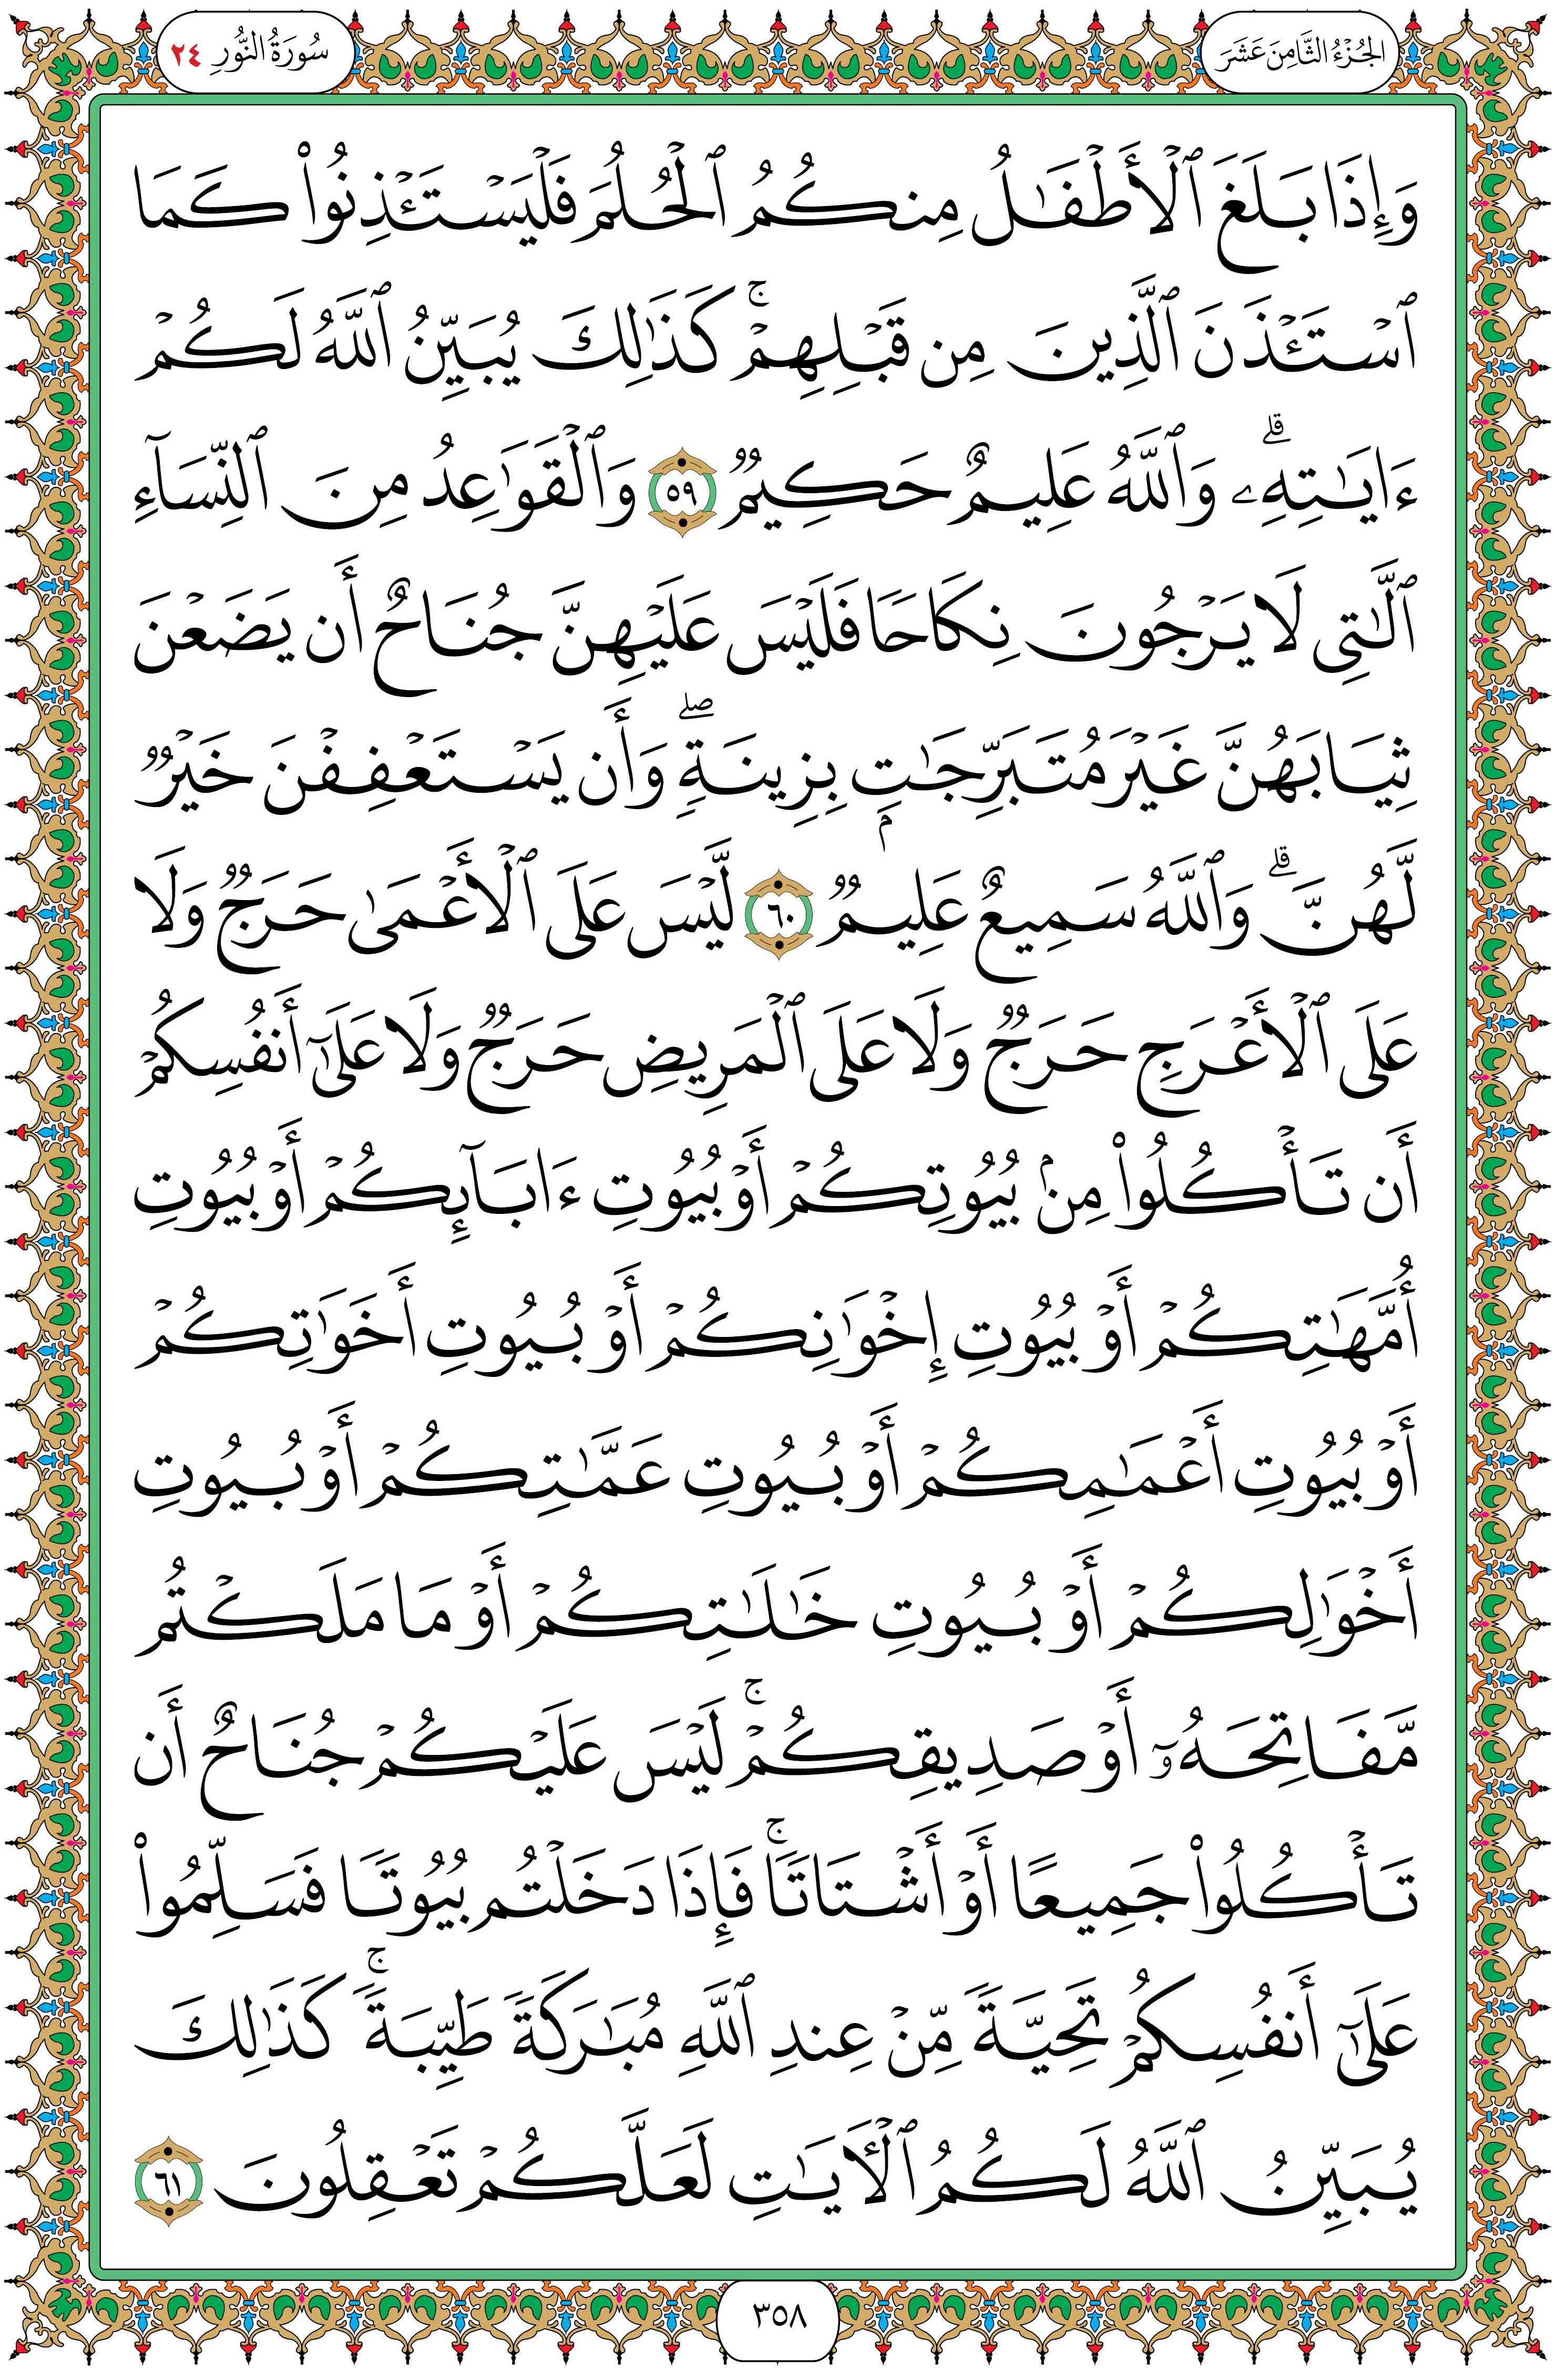 الجُزْءُ الثَّامِنَ عَشَرَ
سُورَةُ النُّورِ ٢٤
وَإِذَا بَلَغَ ٱلْأَطْفَٰلُ مِنكُمُ ٱلْحُلُمَ فَلْيَسْتَـْٔذِنُوا۟ كَمَا
ٱسْتَـْٔذَنَ ٱلَّذِينَ مِن قَبْلِهِمْ ۚ كَذَٰلِكَ يُبَيِّنُ ٱللَّهُ لَكُمْ
ءَايَٰتِهِۦ ۗ وَٱللَّهُ عَلِيمٌ حَكِيمٌ ٥٩ وَٱلْقَوَٰعِدُ مِنَ ٱلنِّسَآءِ
ٱلَّٰتِى لَا يَرْجُونَ نِكَاحًا فَلَيْسَ عَلَيْهِنَّ جُنَاحٌ أَن يَضَعْنَ
ثِيَابَهُنَّ غَيْرَ مُتَبَرِّجَٰتٍۭ بِزِينَةٍ ۖ وَأَن يَسْتَعْفِفْنَ خَيْرٌ
لَّهُنَّ ۗ وَٱللَّهُ سَمِيعٌ عَلِيمٌ ٦٠ لَّيْسَ عَلَى ٱلْأَعْمَىٰ حَرَجٌ وَلَا
عَلَى ٱلْأَعْرَجِ حَرَجٌ وَلَا عَلَى ٱلْمَرِيضِ حَرَجٌ وَلَا عَلَىٰٓ أَنفُسِكُمْ
أَن تَأْكُلُوا۟ مِنۢ بُيُوتِكُمْ أَوْ بُيُوتِ ءَابَآئِكُمْ أَوْ بُيُوتِ
أُمَّهَٰتِكُمْ أَوْ بُيُوتِ إِخْوَٰنِكُمْ أَوْ بُيُوتِ أَخَوَٰتِكُمْ
أَوْ بُيُوتِ أَعْمَٰمِكُمْ أَوْ بُيُوتِ عَمَّٰتِكُمْ أَوْ بُيُوتِ
أَخْوَٰلِكُمْ أَوْ بُيُوتِ خَٰلَٰتِكُمْ أَوْ مَا مَلَكْتُم
مَّفَاتِحَهُۥٓ أَوْ صَدِيقِكُمْ ۚ لَيْسَ عَلَيْكُمْ جُنَاحٌ أَن
تَأْكُلُوا۟ جَمِيعًا أَوْ أَشْتَاتًا ۚ فَإِذَا دَخَلْتُم بُيُوتًا فَسَلِّمُوا۟
عَلَىٰٓ أَنفُسِكُمْ تَحِيَّةً مِّنْ عِندِ ٱللَّهِ مُبَٰرَكَةً طَيِّبَةً ۚ كَذَٰلِكَ
يُبَيِّنُ ٱللَّهُ لَكُمُ ٱلْـَٔايَٰتِ لَعَلَّكُمْ تَعْقِلُونَ ٦١
٣٥٨